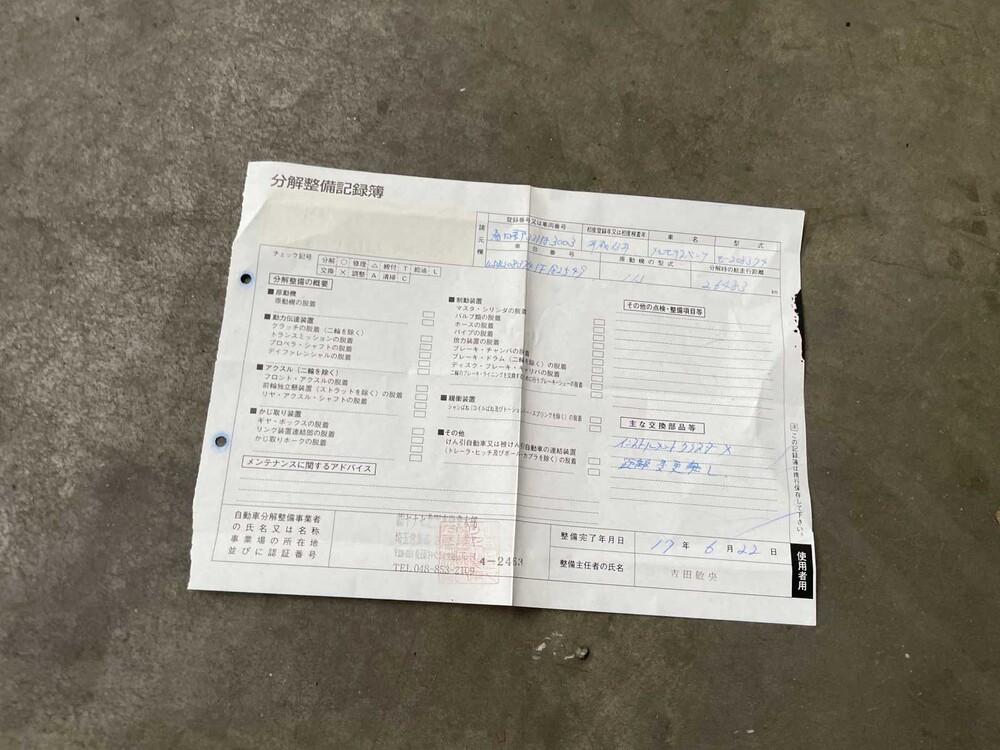 分解整備記録簿
諸元欄
登録番号又は車両番号
初度登録年又は初度検査年
車名
型式
車台番号
原動機の型式
分解時の総走行距離
26483 km
チェック記号
分解 ○ 修理 △ 締付 T 給油 L
交換 × 調整 A 清掃 C
分解整備の概要
■原動機
原動機の脱着
■動力伝達装置
クラッチの脱着(二輪を除く)
トランスミッションの脱着
プロペラ・シャフトの脱着
デイファレンシャルの脱着
■アクスル(二輪を除く)
フロント・アクスルの脱着
前輪独立懸架装置(ストラットを除く)の脱着
リヤ・アクスル・シャフトの脱着
■かじ取り装置
ギヤ・ボックスの脱着
リンク装置連結部の脱着
かじ取りホークの脱着
メンテナンスに関するアドバイス
■制動装置
マスタ・シリンダの脱着
バルブ類の脱着
ホースの脱着
パイプの脱着
倍力装置の脱着
ブレーキ・チャンバの脱着
ブレーキ・ドラム(二輪を除く)の脱着
ディスク・ブレーキ・キャリパの脱着
二輪のブレーキ・ライニングを交換するために行うブレーキ・シューの脱着
■緩衝装置
シャシばね(コイルばね及びトーションバー・スプリングを除く)の脱着
■その他
けん引自動車又は被けん引自動車の連結装置
(トレーラ・ヒッチ及びボール・カプラを除く)の脱着
その他の点検・整備項目等
主な交換部品等
インストルメントクラスター ×
距離変更無し
注 この記録簿は携行保存して下さい。
使用者用
自動車分解整備事業者
の氏名又は名称
事業場の所在地
並びに認証番号
TEL 048-853-2109
4-2463
整備完了年月日
17年 6月 22日
整備主任者の氏名
吉田敏央